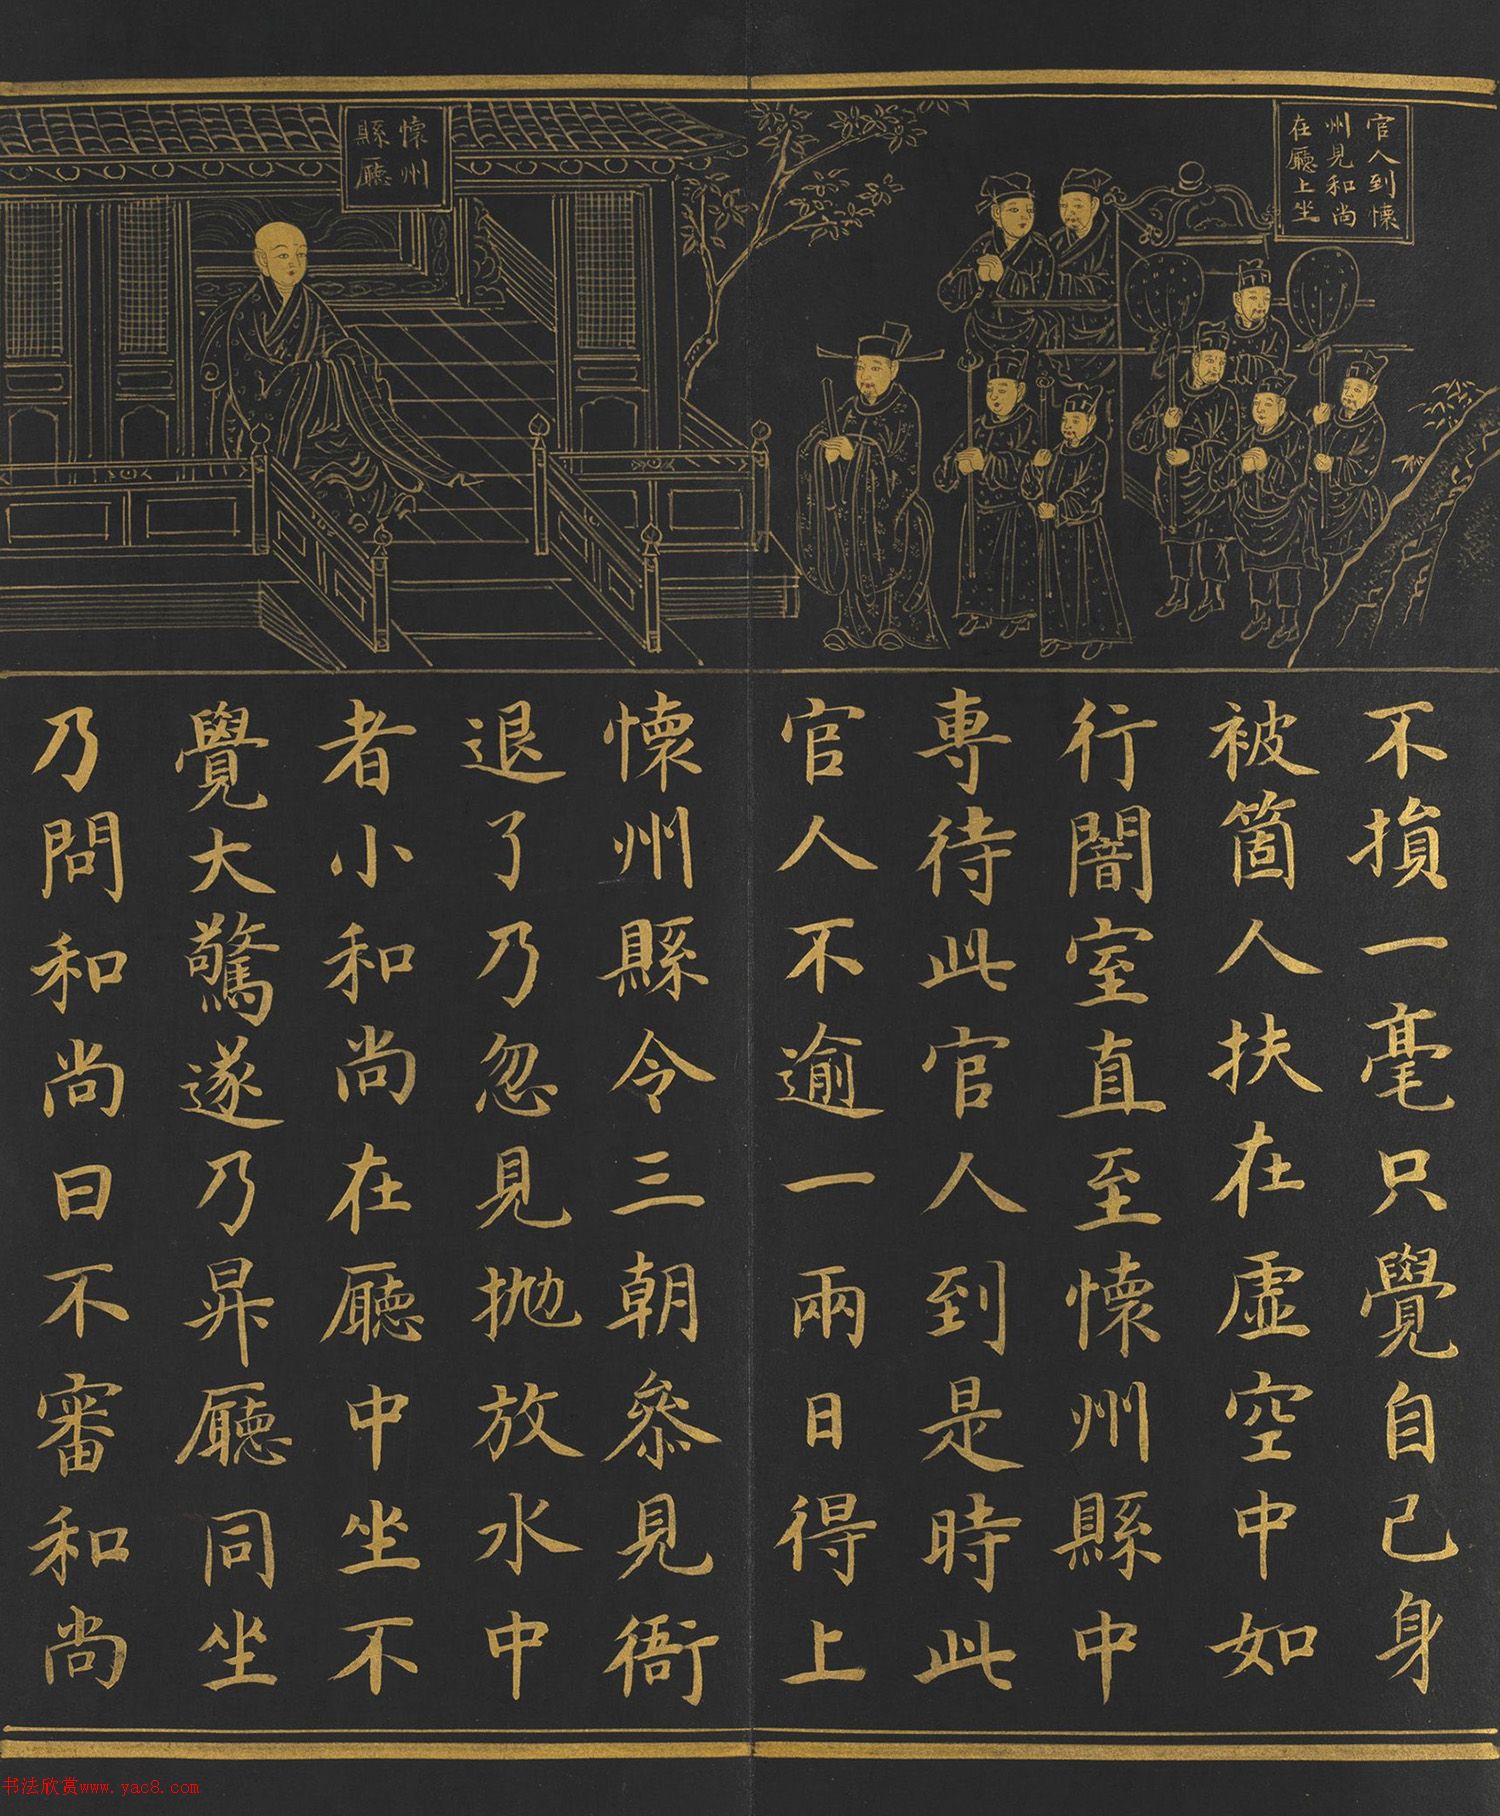 官人到懷
州見和尚
在廳上坐
懷州
縣廳
不損一毫只覺自己身
被箇人扶在虛空中如
行闇室直至懷州縣中
專待此官人到是時此
官人不逾一兩日得上
懷州縣令三朝叅見衙
退了乃忽見拋放水中
者小和尚在廳中坐不
覺大驚遂乃昇廳同坐
乃問和尚曰不審和尚
书法欣赏www.yac8.com